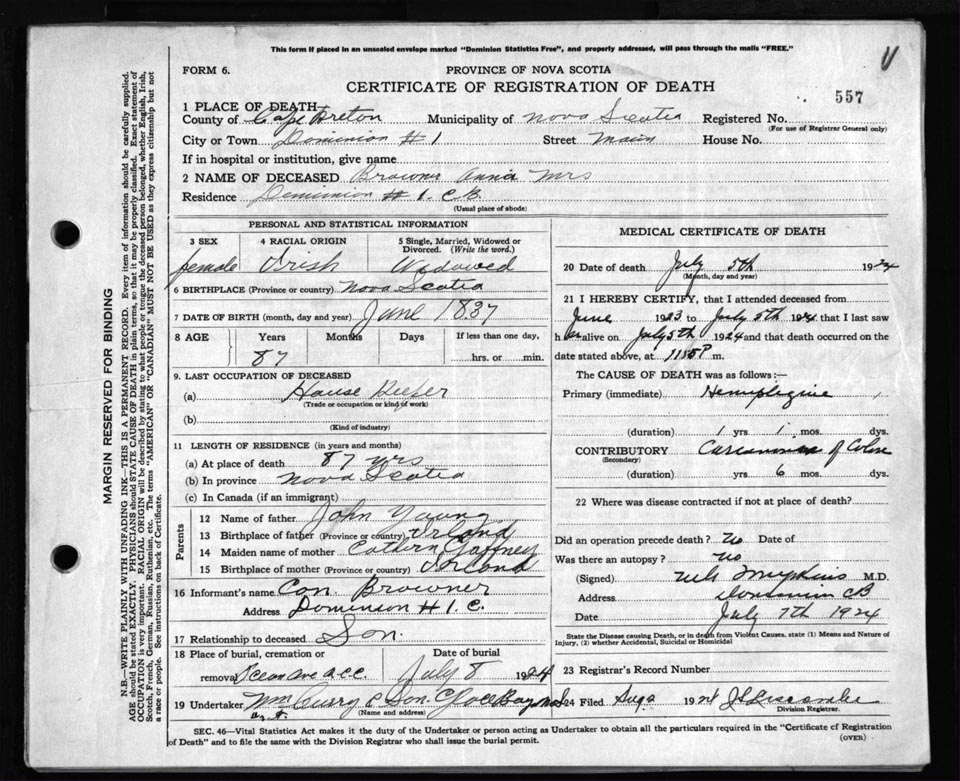 This form if placed in an unsealed envelope marked "Dominion Statistics Free", and properly addressed, will pass through the mails "FREE."
FORM 6.
PROVINCE OF NOVA SCOTIA
CERTIFICATE OF REGISTRATION OF DEATH
557
1 PLACE OF DEATH
County of Cape Breton Municipality of Nova Scotia Registered No.
(For use of Registrar General only)
City or Town Dominion # 1 Street Main House No.
If in hospital or institution, give name
2 NAME OF DECEASED Browner Annie Mrs
Residence Dominion # 1. C.B.
(Usual place of abode)
PERSONAL AND STATISTICAL INFORMATION
3 SEX 4 RACIAL ORIGIN 5 Single, Married, Widowed or Divorced. (Write the word.)
female Irish Widowed
6 BIRTHPLACE (Province or country) Nova Scotia
7 DATE OF BIRTH (month, day and year) June 1837
8 AGE Years Months Days If less than one day,
87 hrs. or min.
9. LAST OCCUPATION OF DECEASED
(a) House Keeper
(Trade or occupation or kind of work)
(b)
(Kind of industry)
11 LENGTH OF RESIDENCE (in years and months)
(a) At place of death 87 yrs
(b) In province Nova Scotia
(c) In Canada (if an immigrant)
Parents
12 Name of father John Young
13 Birthplace of father (Province or country) Irland
14 Maiden name of mother Cathern Gaffney
15 Birthplace of mother (Province or country) Irland
16 Informant's name Con. Browner
Address Dominion # 1. C.
17 Relationship to deceased Son.
18 Place of burial, cremation or Date of burial
removal Ocean Ave July 8 1924
19 Undertaker Wm Curry & Son Glace Bay
(Name and address)
MEDICAL CERTIFICATE OF DEATH
20 Date of death July 5th 1924
(Month, day and year)
21 I HEREBY CERTIFY, that I attended deceased from
June 1923 to July 5th 1924 that I last saw
her alive on July 5th 1924 and that death occurred on the
date stated above, at 1155 P m.
The CAUSE OF DEATH was as follows:—
Primary (immediate)
(duration) 1 yrs 1 mos. dys.
CONTRIBUTORY of Colon
(Secondary)
(duration) yrs 6 mos. dys.
22 Where was disease contracted if not at place of death?
Did an operation precede death? No Date of
Was there an autopsy? no
(Signed) Tompkins M.D.
Address Dominion CB
Date July 7th 1924
State the Disease causing Death, or in death from Violent Causes, state (1) Means and Nature of
Injury, (2) whether Accidental, Suicidal or Homicidal
23 Registrar's Record Number
24 Filed 1924
Division Registrar.
SEC. 46—Vital Statistics Act makes it the duty of the Undertaker or person acting as Undertaker to obtain all the particulars required in the "Certificate of Registration
of Death" and to file the same with the Division Registrar who shall issue the burial permit.
(OVER)
MARGIN RESERVED FOR BINDING
N.B.—WRITE PLAINLY WITH UNFADING INK—THIS IS A PERMANENT RECORD. Every item of information should be carefully supplied.
AGE should be stated EXACTLY. PHYSICIANS should STATE CAUSE OF DEATH in plain terms, so that it may be properly classified. Exact statement of
OCCUPATION is very important. RACIAL ORIGIN will be described by stating to what people or tongue the deceased person belonged, whether English, Irish,
Scotch, French, German, Russian, Ruthenian, etc. The terms "AMERICAN" OR "CANADIAN" MUST NOT BE USED as they express citizenship but not
a race or people. See instructions on back of Certificate.